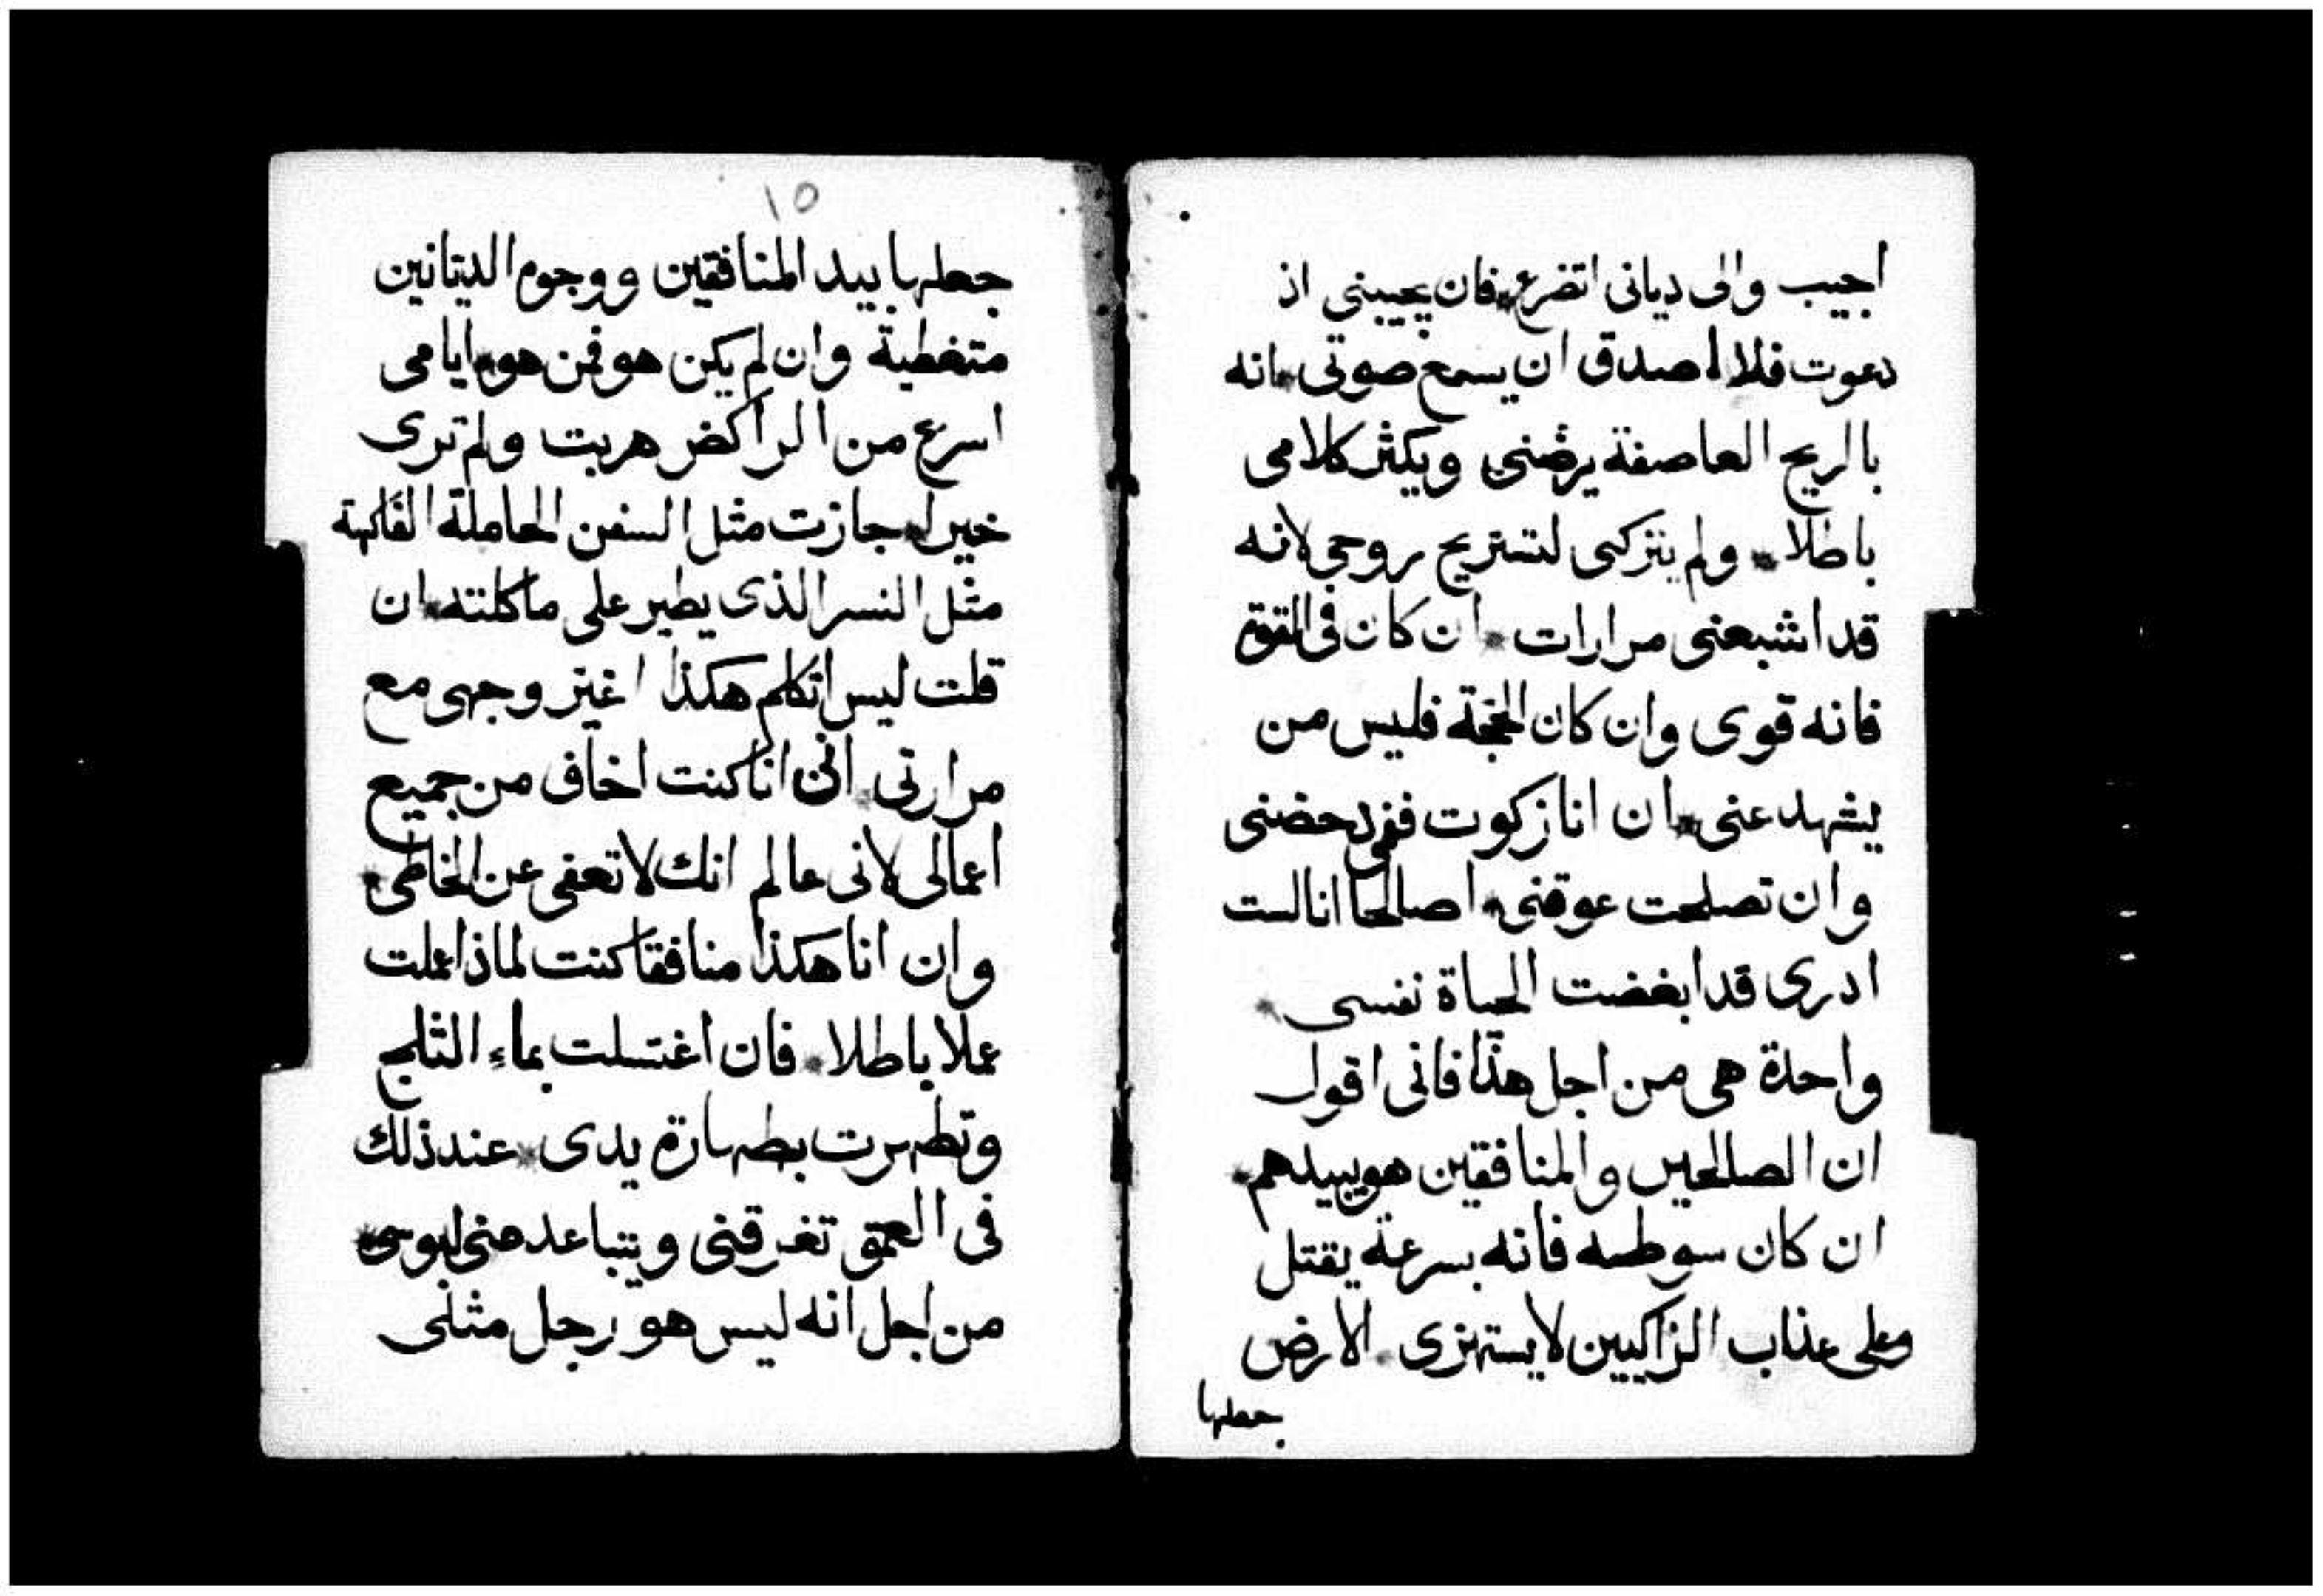 اجيب والى ديانى اتضرع * فان يجيبنى اذ
دعوت فلا اصدق ان يسمع صوتى * انه
بالريح العاصفة يرضنى ويكثر كلامى
باطلا * ولم يتركنى لتستريح روحى لانه
قد اشبعنى مرارات * ان كان فى القوة
فانه قوى وان كان الحجة فليس من
يشهد عنى * ان انا زكوت ففمى يدحضنى
وان تصلحت عوقنى * اصالحا انا لست
ادرى قد ابغضت الحياة نفسى *
واحدة هى من اجل هذا فانى اقول
ان الصالحين والمنافقين هو يبيدهم *
ان كان سوطه فانه بسرعة يقتل
وعلى عذاب الزاكيين لا يستهزى * الارض
جعلها
١٥
جعلها بيد المنافقين ووجوه الديانين
متغطية وان لم يكن هو فمن هو * ايامى
اسرع من الراكض هربت ولم ترى
خيرا * جازت مثل السفن الحاملة الفاكهة
مثل النسر الذى يطير على ماكلته * ان
قلت ليس اتكلم هكذا اغير وجهى مع
مرارتى * انى انا كنت اخاف من جميع
اعمالى لانى عالم انك لا تعفى عن الخاطى *
وان انا هكذا منافقا كنت لماذا عملت
عملا باطلا * فان اغتسلت بماء الثلج
وتطهرت بطهارة يدى * عند ذلك
فى العمق تغرقنى ويتباعد منى لبوسى *
من اجل انه ليس هو رجل مثلى